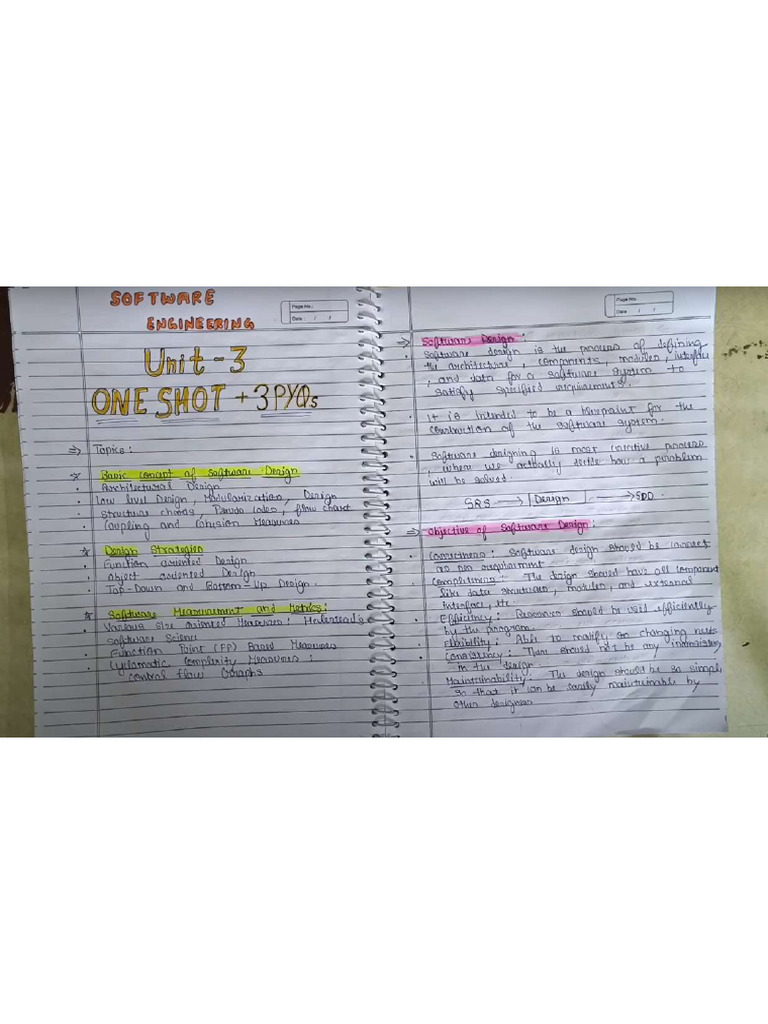 SOFTWARE
ENGINEERING
Page No.:
Date: / /
Unit - 3
ONE SHOT + 3 PYQs
⇒ Topics :
* Basic concept of software Design
• Architectural Design
• Low level Design, Modularization, Design
• Structure charts, Pseudo codes, flow chart
• Coupling and Cohesion Measures
* Design Strategies
• Function oriented Design
• object oriented Design
• Top-Down and Bottom-Up Design.
* Software Measurement and Metrics :
• Various size oriented Measures : Halestead's
Software Science
• Function Point (FP) Based Measures
• Cyclomatic Complexity Measures :
control flow Graphs
Page No.
Date: / /
⇒ Software Design :
• Software design is the process of defining
the architecture, components, modules, interface
, and data for a software system to
satisfy specified requirements.
• It is intended to be a blueprint for the
construction of the software system.
• Software designing is most creative process
, where we actually decide how a problem
will be solved.
SRS → Design → SDD
⇒ Objective of Software Design :
• Correctness : Software design should be correct
as per requirement
• Completeness : The design should have all component
like data structures, modules, and external
interface, etc.
• Efficiency : Resources should be used efficiently
by the program.
• Flexibility : Able to modify on changing needs
• Consistency : There should not be any inconsistency
in the design.
• Maintainability : The design should be so simple
so that it can be easily maintainable by
other designers